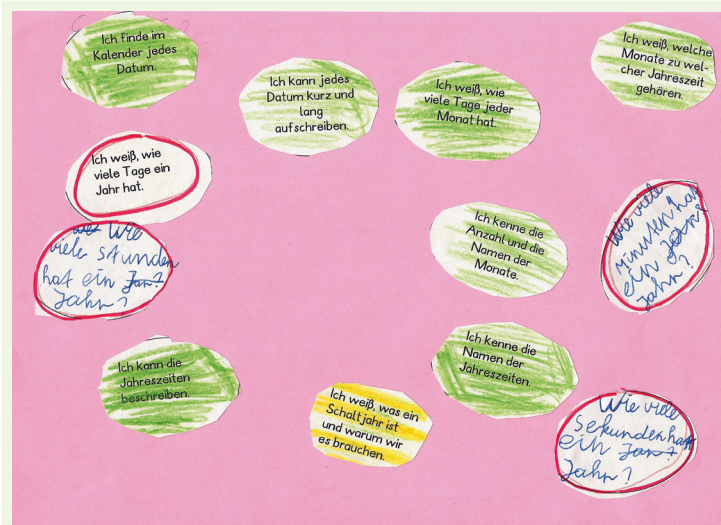 Ich finde im
Kalender jedes
Datum.
Ich kann jedes
Datum kurz und
lang
aufschreiben.
Ich weiß, wie
viele Tage jeder
Monat hat.
Ich weiß, welche
Monate zu wel-
cher Jahreszeit
gehören.
Ich weiß, wie
viele Tage ein
Jahr hat.
Wie
viele stunden
hat ein Jan?
Jahr?
Ich kenne die
Anzahl und die
Namen der
Monate.
Wie viele
minuten hat
ein
Jahr?
Ich kann die
Jahreszeiten
beschreiben.
Ich weiß, was ein
Schaltjahr ist
und warum wir
es brauchen.
Ich kenne die
Namen der
Jahreszeiten.
Wie viele
sekunden hat
ein Jan?
Jahr?